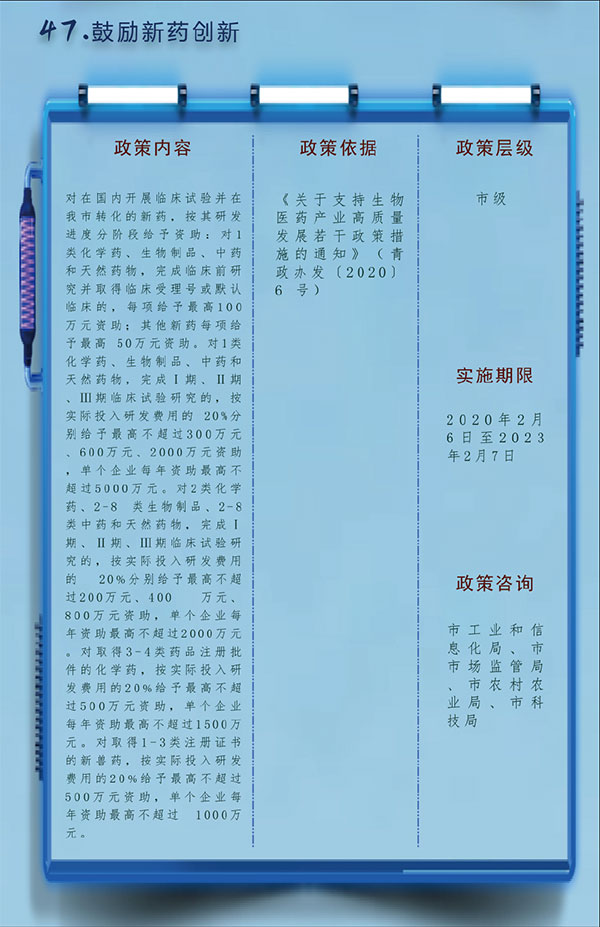 47.鼓励新药创新
政策内容
对在国内开展临床试验并在
我市转化的新药，按其研发
进度分阶段给予资助：对1
类化学药、生物制品、中药
和天然药物，完成临床前研
究并取得临床受理号或默认
临床的，每项给予最高100
万元资助；其他新药每项给
予最高 50万元资助。对1类
化学药、生物制品、中药和
天然药物，完成Ⅰ期、Ⅱ期
、Ⅲ期临床试验研究的，按
实际投入研发费用的 20%分
别给予最高不超过300万元
、600万元、2000万元资助
，单个企业每年资助最高不
超过5000万元。对2类化学
药、2-8 类生物制品、2-8
类中药和天然药物，完成Ⅰ
期、Ⅱ期、Ⅲ期临床试验研
究的，按实际投入研发费用
的 20%分别给予最高不超
过200万元、400 万元、
800万元资助，单个企业每
年资助最高不超过2000万元
。对取得3-4类药品注册批
件的化学药，按实际投入研
发费用的20%给予最高不超
过500万元资助，单个企业
每年资助最高不超过1500万
元。对取得1-3类注册证书
的新兽药，按实际投入研发
费用的20%给予最高不超过
500万元资助，单个企业每
年资助最高不超过 1000万
元。
政策依据
《关于支持生物
医药产业高质量
发展若干政策措
施的通知》（青
政办发〔2020〕
6 号）
政策层级
市级
实施期限
2020年2月
6日至2023
年2月7日
政策咨询
市工业和信
息化局、市
市场监管局
、市农村农
业局、市科
技局